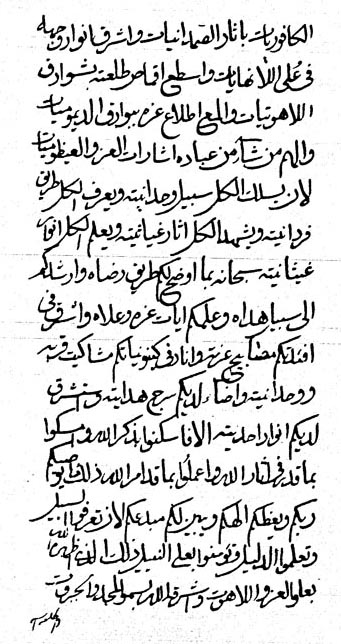 الكافوريات باثار الصمدانيات واشرق انوار وجهه
في على اللانهايات واسطع اقماص طلعته بشوارق
اللاهوتيات والمع اطلاع عزه ببوارق الديوميات
والهم من شاء من عباده اشارات العز والعيظوميات
لان يسلك الكل سبيل وحدانيته ويعرف الكل طريق
فردانيته ويشهد الكل اثار غياثيته ويعلم الكل انوار
غيثانيته سبحانه بما اوضح لكم طريق رضاه وارشدكم
الى سبيل هداه وعلمكم ايات عزه وعلاه واشرق في
افئدتكم مصابيح عزته وانار في كينونياتكم مشاكيت قربه
ووحدانيته واضاء لديكم سرج هدايته وتشرق
لديكم انوار احديته الا فاسكنوا بذكر الله وامسكوا
بما قدر في اثار الله واعملوا بما قد امر الله ذلك
ربكم ويعظكم الهكم ويبين لكم مبدعكم لان تعرفوا السبيل
وتعلموا الدليل وتؤمنوا بعلي النبيل ذلك الذي
بعلو العز واللاهوت واشرقه الله بسمو المجد والجبروت